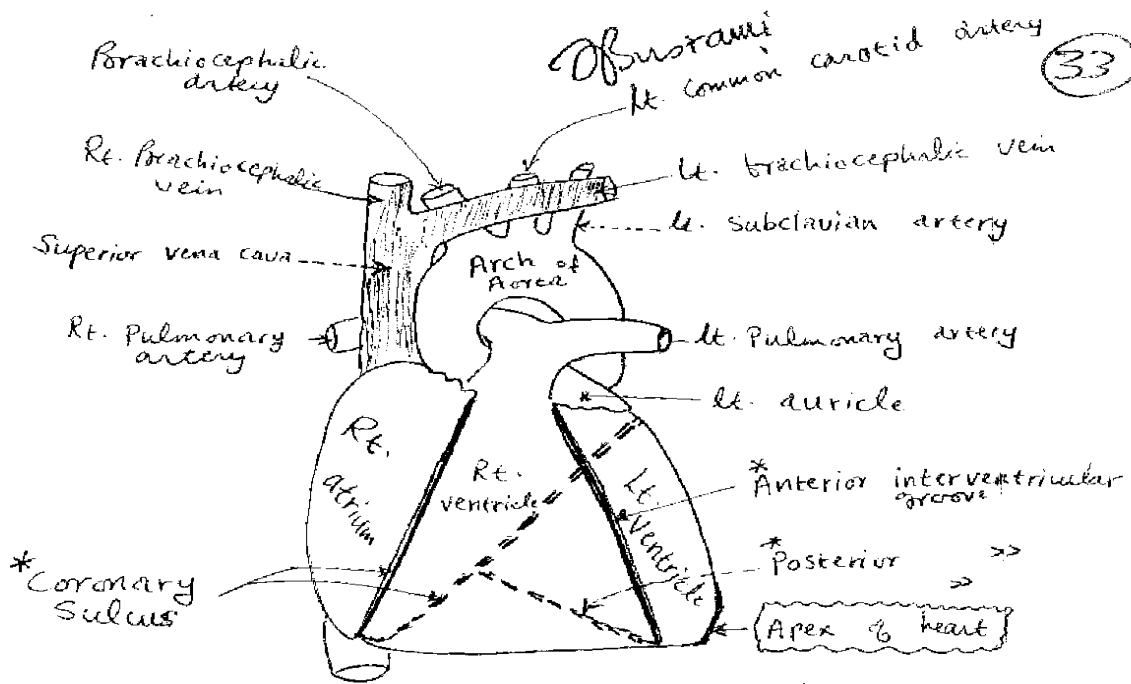 Brachiocephalic
artery
Lt. common carotid artery
33
Rt. Brachiocephalic
vein
Lt. brachiocephalic vein
Lt. subclavian artery
Superior vena cava
Arch of
Aorta
Rt. Pulmonary
artery
Lt. Pulmonary artery
Lt. auricle
Rt.
atrium
Rt.
ventricle
Lt.
ventricle
*Anterior interventricular
groove
*Posterior >>
>>
*Coronary
Sulcus
Apex of heart